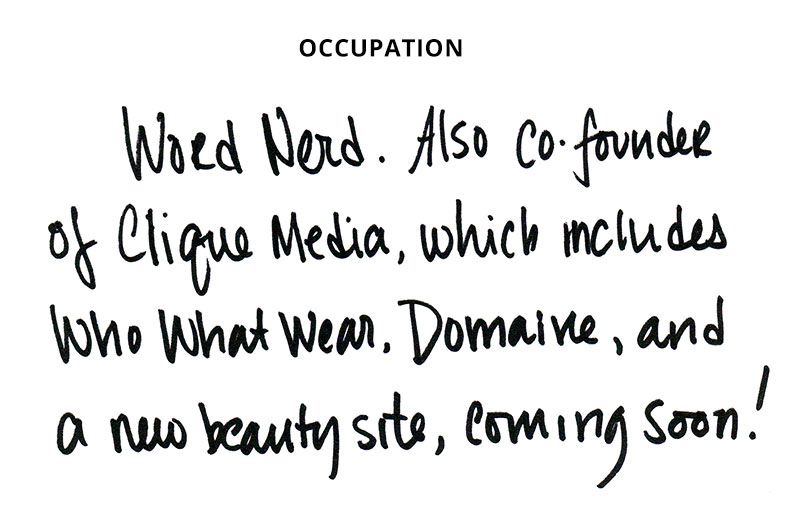 OCCUPATION
Word Nerd. Also co-founder
of Clique Media, which includes
Who What Wear, Domaine, and
a new beauty site, coming soon!